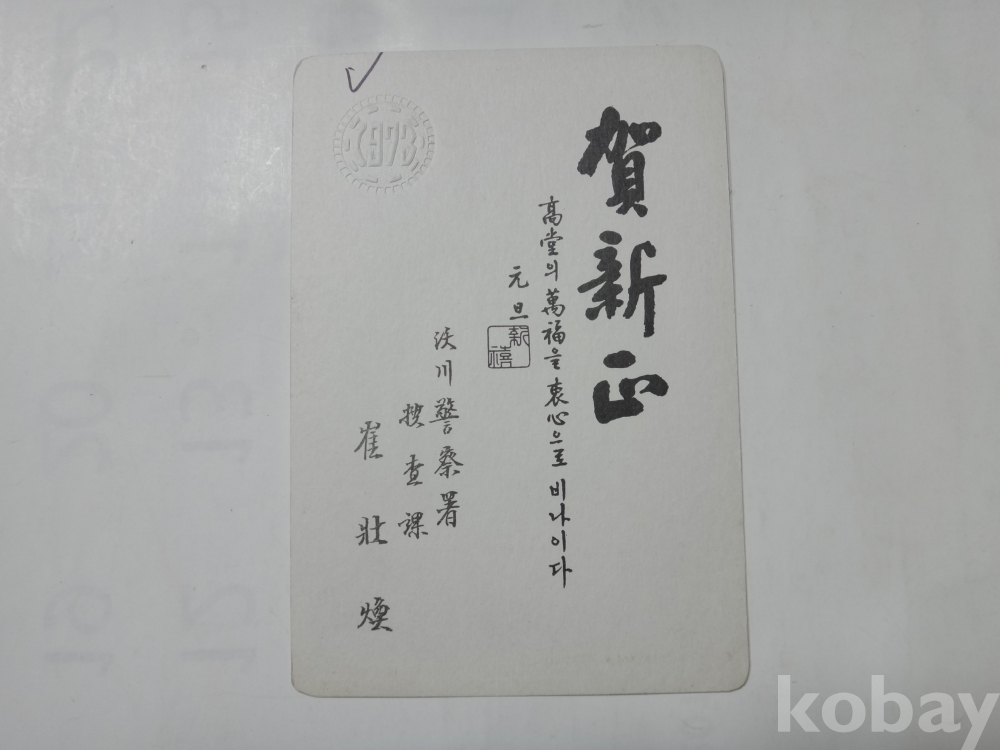 賀新正
高堂의 萬福을 衷心으로 비나이다
元旦
新禧
沃川警察署
搜查課
崔壯煥
1973
kobay